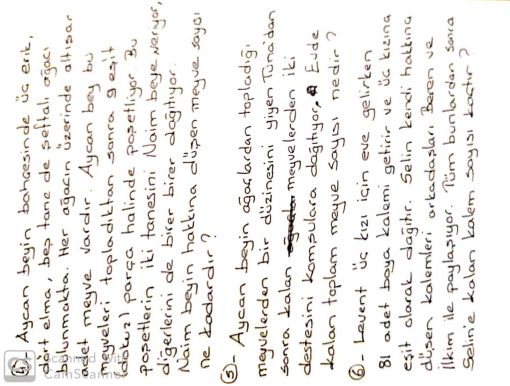 4- Aycan beyin bahçesinde üç erik,
dört elma, beş tane de şeftali ağacı
bulunmakta. Her ağacın üzerinde altışar
adet meyve vardır. Aycan bey bu
meyveleri topladıktan sonra eşit
dokuz parça halinde poşetliyor. Bu
poşetlerin iki tanesini Naim beye veriyor,
diğerlerini de birer birer dağıtıyor.
Naim beyin hakkına düşen meyve sayısı
ne kadardır?
5- Aycan beyin ağaçlardan topladığı
meyvelerden bir düzinesini yiyen Tuna'dan
sonra kalan meyvelerden iki
destesini komşulara dağıtıyor. Evde
kalan toplam meyve sayısı nedir?
6- Levent üç kızı için eve gelirken
81 adet boya kalemi getirir ve üç kızına
eşit olarak dağıtır. Selin kendi hakkına
düşen kalemleri arkadaşları Beren ve
İlkim ile paylaşıyor. Tüm bunlardan sonra
Selin'e kalan kalem sayısı kaçtır?
Scanned with
CamScanner